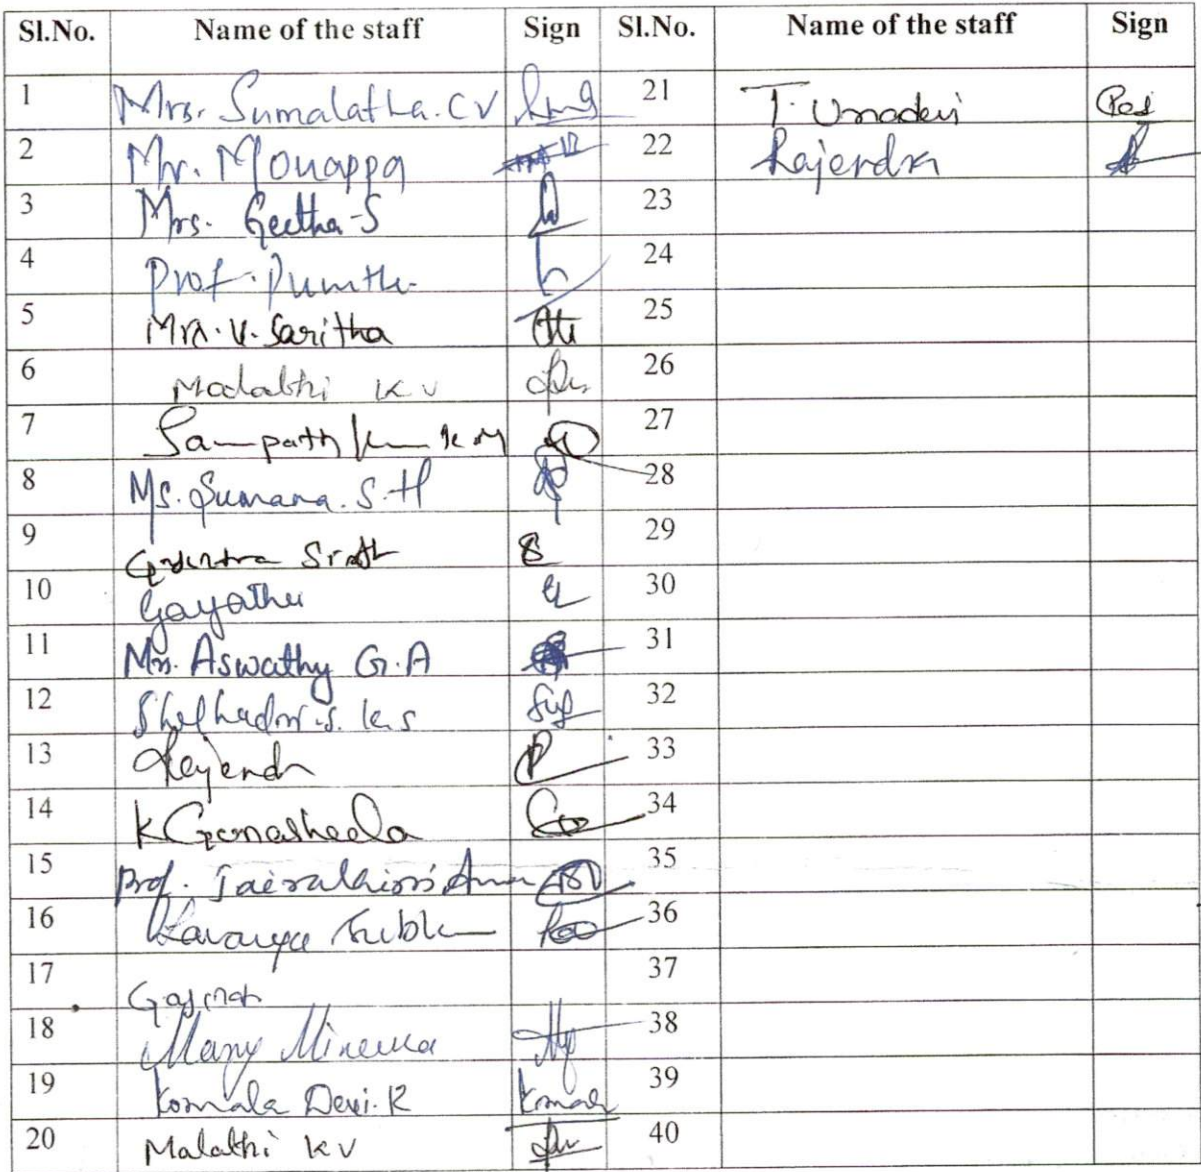 Sl.No. Name of the staff Sign Sl.No. Name of the staff Sign
1 Mrs. Sumalatha. C V 21 T. Umadevi
2 Mr. Monappa 22 Rajendra
3 Mrs. Geetha-S 23
4 Prof. 24
5 Mrs. V. Saritha 25
6 Madalthi K V 26
7 Sampath Kum K M 27
8 Ms. Sumana. S. H 28
9 29
10 Gayathri 30
11 Mrs. Aswathy G. A 31
12 K. S 32
13 Rajendr 33
14 K Gunasheela 34
15 Prof. 35
16 Lavanya 36
17 37
18 Mary Minerva 38
19 Komala Devi. R Komala 39
20 Malathi K V 40